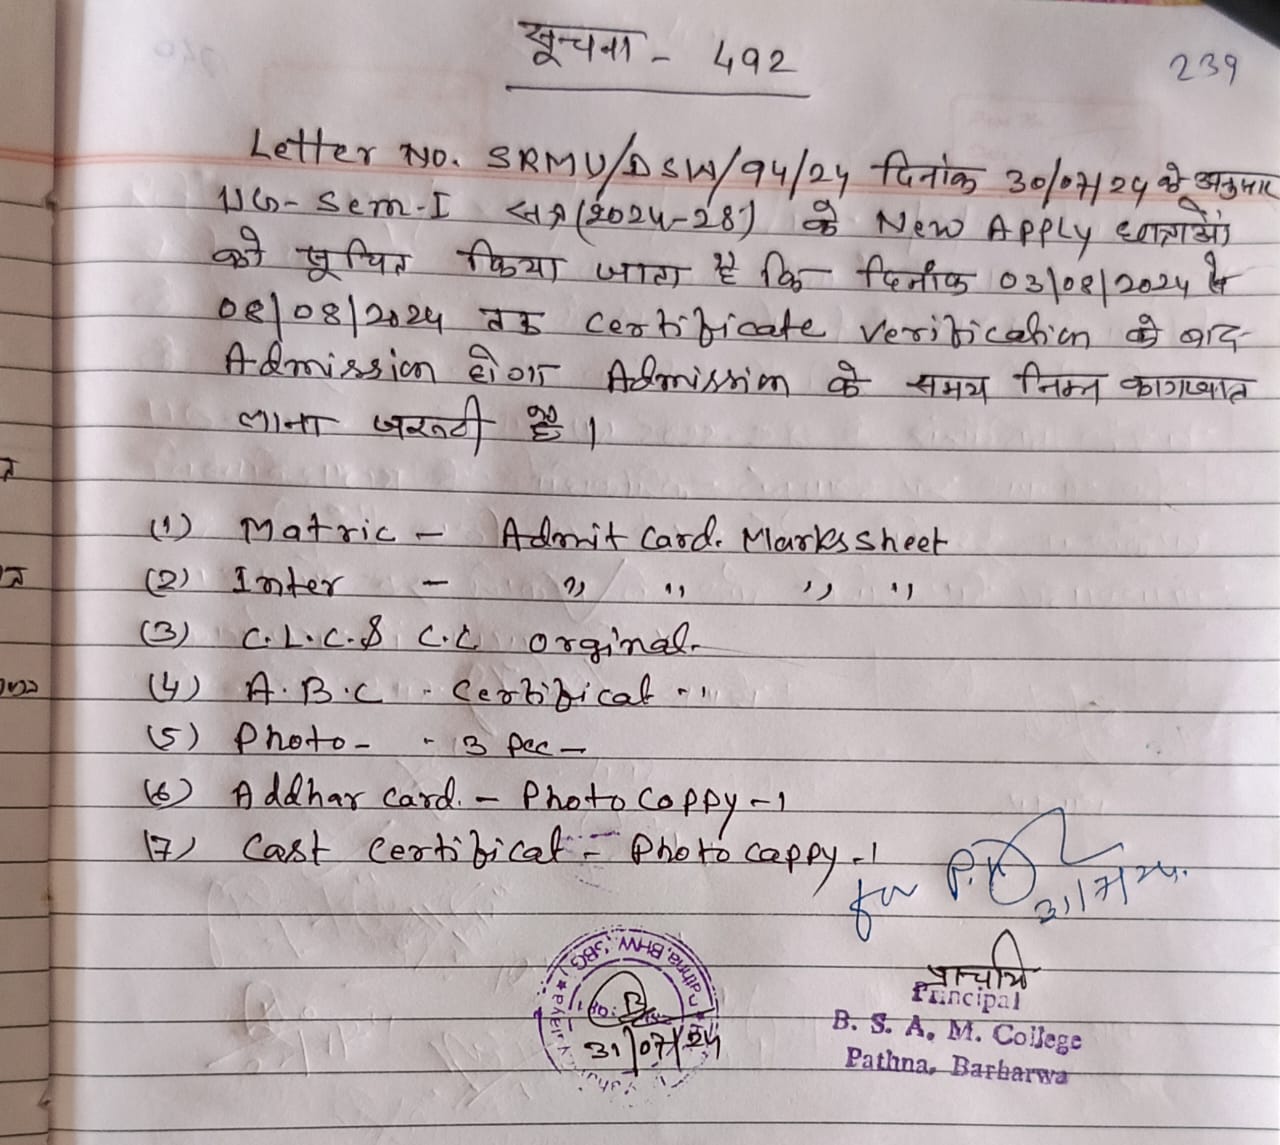 सूचना - 492
239
Letter No. SRMU/DSW/94/24 दिनांक 30/07/24 के अनुसार
UG- Sem-I सत्र (2024-28) के New Apply छात्राओं
को सूचित किया जाता है कि दिनांक 03/08/2024 से
08/08/2024 तक Certificate verification के बाद
Admission होगा Admission के समय निम्न कागजात
लाना जरूरी है।
(1) Matric - Admit Card. Markssheet
(2) Inter - " " " "
(3) C.L.C. & C.C orginal.
(4) A.B.C. Certificat - "
(5) Photo - 3 Pec -
(6) Addhar card. - Photo Coppy - 1
(7) Cast Certificat - Photo cappy - 1
for
31/7/24.
31/07/24
प्राचार्य
Principal
B. S. A. M. College
Pathna, Barharwa